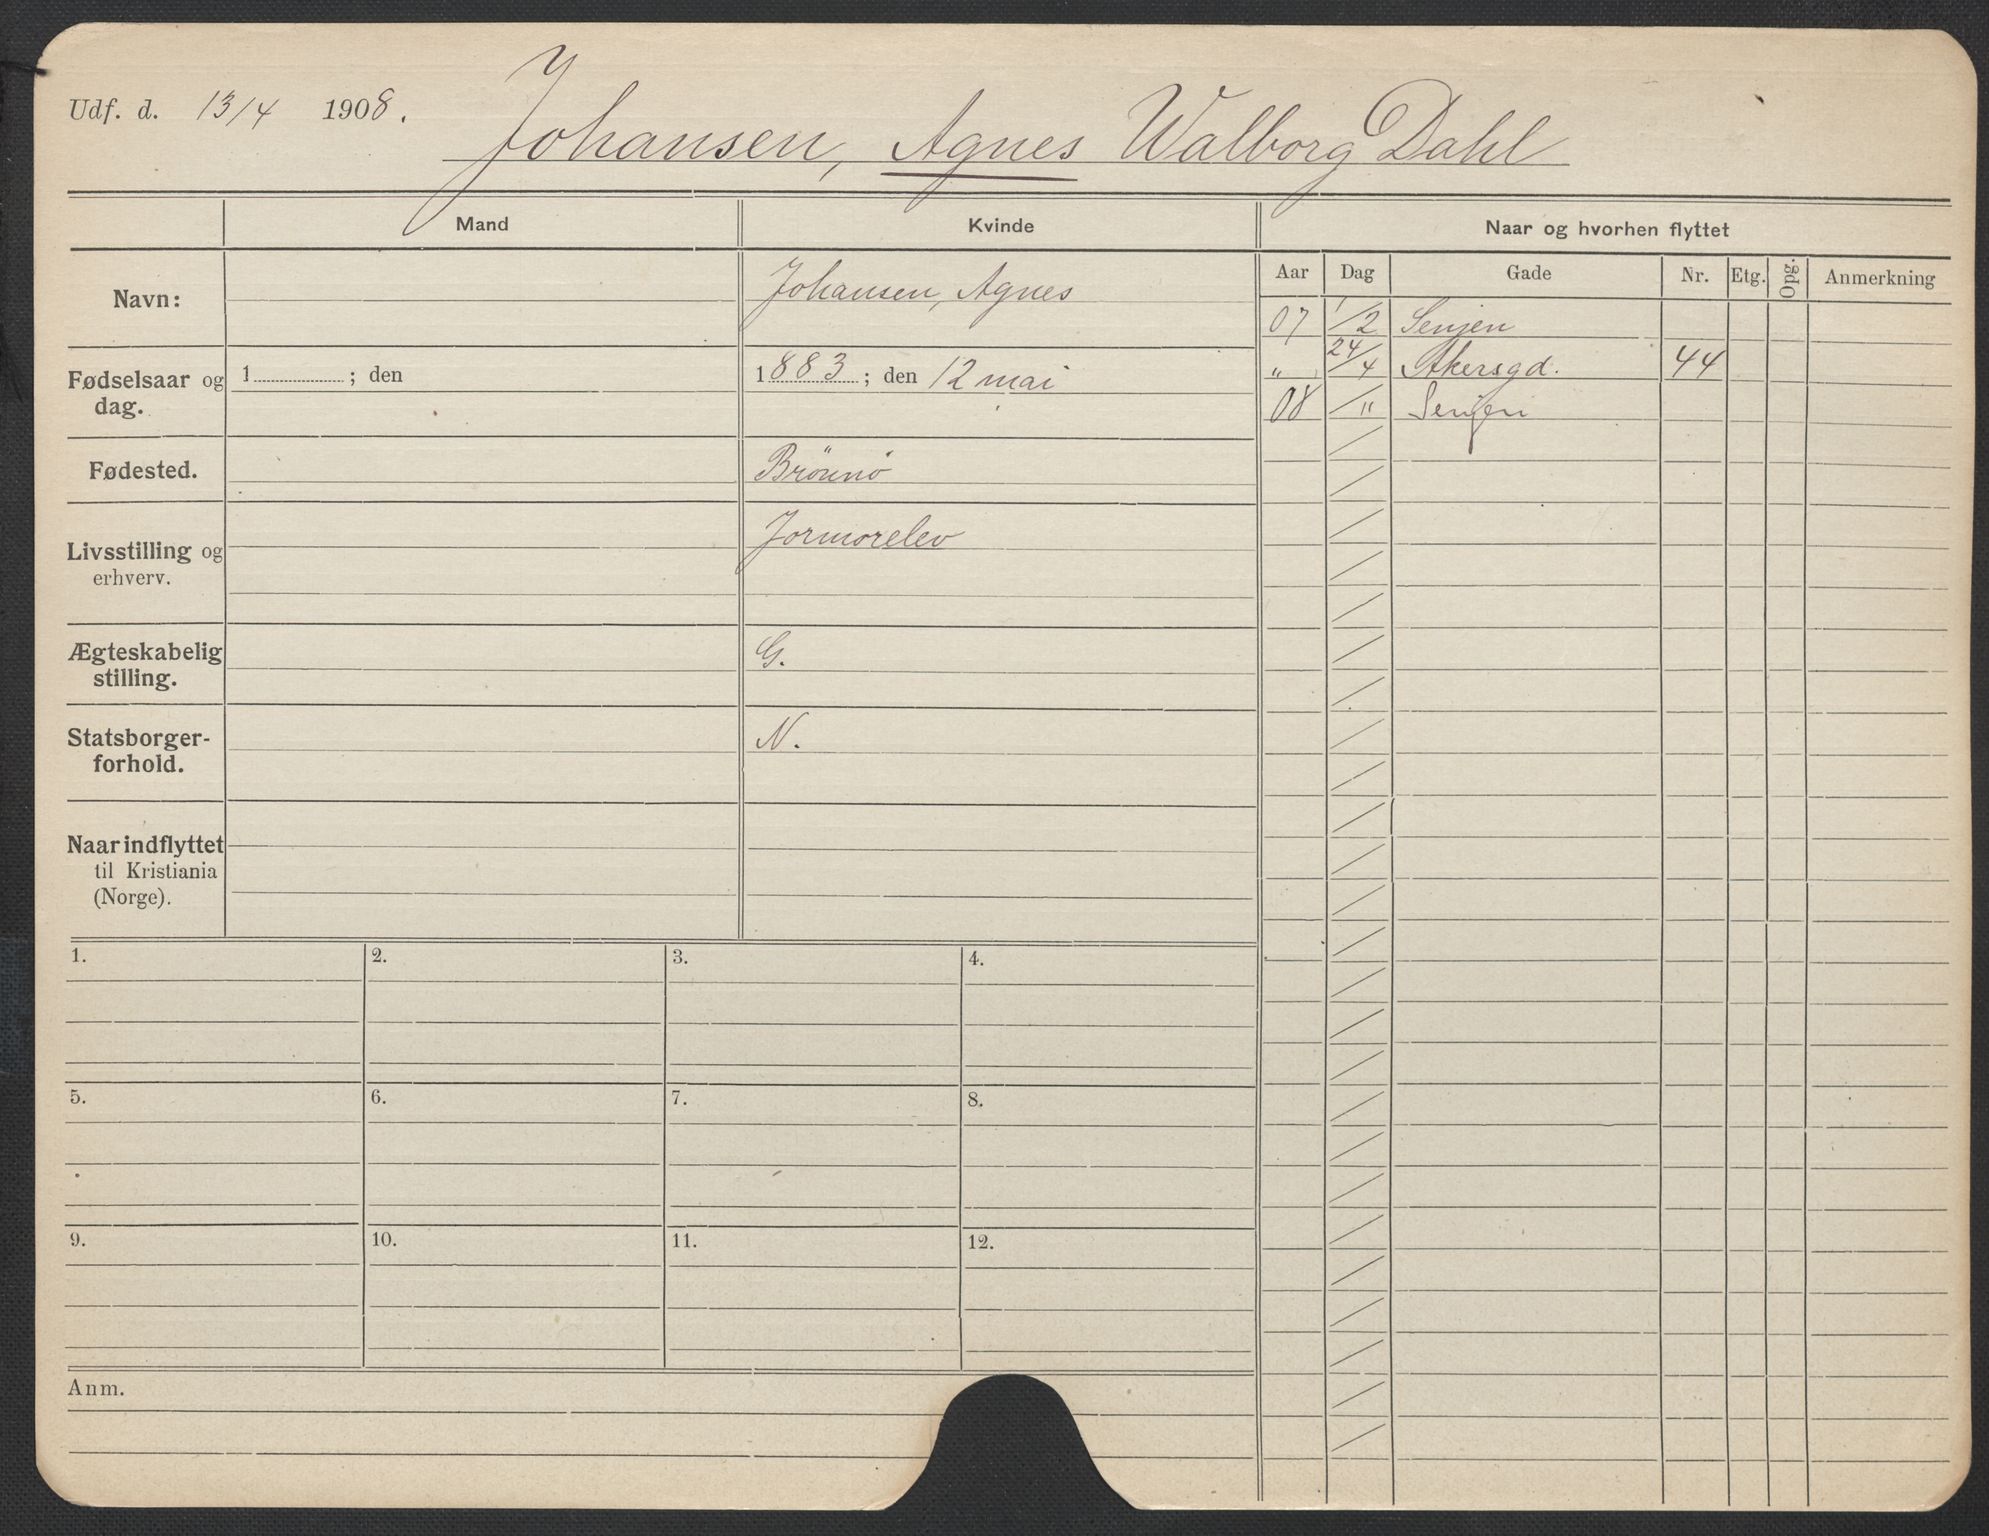 Udf. d. 13/4 1908.
Johansen, Agnes Walborg Dahl
Mand Kvinde Naar og hvorhen flyttet
Aar Dag Gade Nr. Etg. Opg. Anmerkning
Navn: Johansen, Agnes
07 1/2 Senjen
Fødselsaar og 1 ; den 1883 ; den 12 mai
dag.
" 24/4 Akersgd. 44
08 / " Senjen
Fødested. Brönnö
Livsstilling og Jormorelev
erhverv.
Ægteskabelig G.
stilling.
Statsborger- N.
forhold.
Naar indflyttet
til Kristiania
(Norge).
1. 2. 3. 4.
5. 6. 7. 8.
9. 10. 11. 12.
Anm.